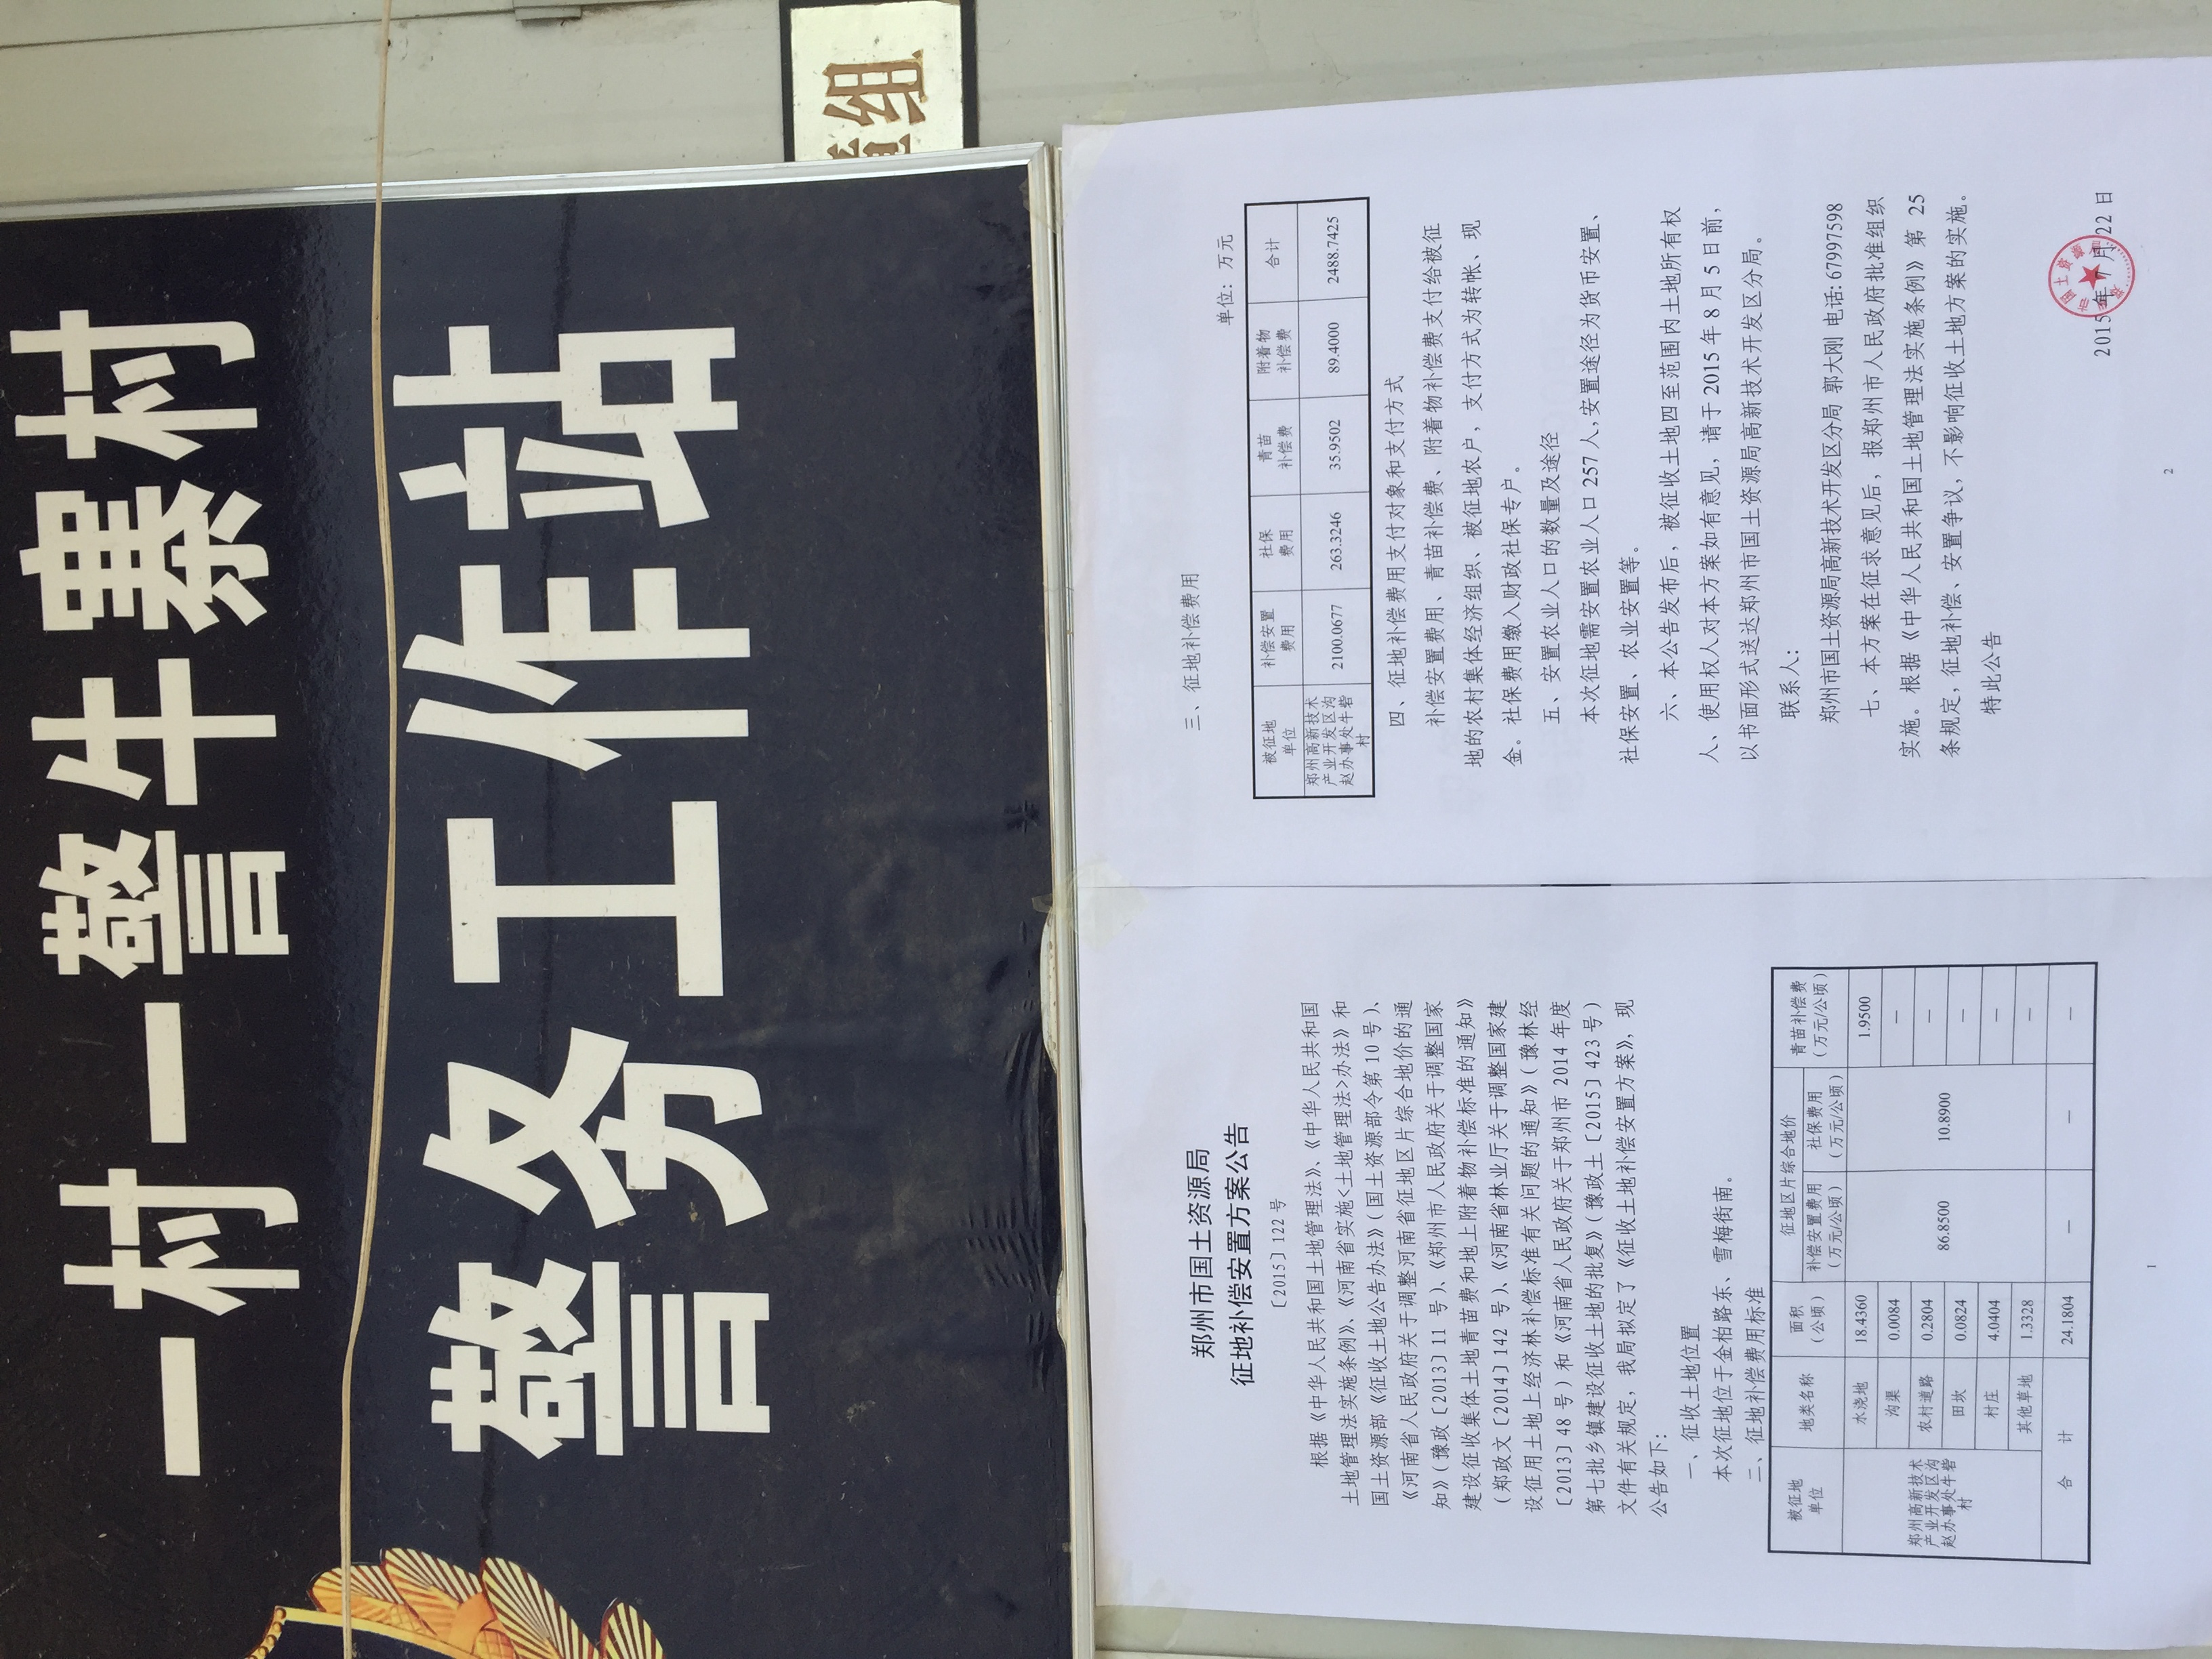 一村一警牛寨村
警务工作站
组
郑州市国土资源局
征地补偿安置方案公告
〔2015〕122号
根据《中华人民共和国土地管理法》、《中华人民共和国
土地管理法实施条例》、《河南省实施<土地管理法>办法》和
国土资源部《征收土地公告办法》（国土资源部令第10号）、
《河南省人民政府关于调整河南省征地区片综合地价的通
知》（豫政〔2013〕11号）、《郑州市人民政府关于调整国家
建设征收集体土地青苗费和地上附着物补偿标准的通知》
（郑政文〔2014〕142号）、《河南省林业厅关于调整国家建
设征用土地上经济林补偿标准有关问题的通知》（豫林经
〔2013〕48号）和《河南省人民政府关于郑州市2014年度
第七批乡镇建设征收土地的批复》（豫政土〔2015〕423号）
文件有关规定，我局拟定了《征收土地补偿安置方案》，现
公告如下：
一、征收土地位置
本次征地位于金柏路东、雪梅街南。
二、征地补偿费用标准
被征地单位 地类名称 面积（公顷） 征地区片综合地价 青苗补偿费（万元/公顷）
补偿安置费用（万元/公顷） 社保费用（万元/公顷）
郑州高新技术产业开发区沟赵办事处牛砦村
水浇地 18.4360 86.8500 10.8900 1.9500
沟渠 0.0084 —
农村道路 0.2804 —
田坎 0.0824 —
村庄 4.0404 —
其他草地 1.3328 —
合计 24.1804 — — —
1
三、征地补偿费用
单位：万元
被征地单位 补偿安置费用 社保费用 青苗补偿费 附着物补偿费 合计
郑州高新技术产业开发区沟赵办事处牛砦村 2100.0677 263.3246 35.9502 89.4000 2488.7425
四、征地补偿费用支付对象和支付方式
补偿安置费用、青苗补偿费、附着物补偿费支付给被征
地的农村集体经济组织、被征地农户，支付方式为转帐、现
金。社保费用缴入财政社保专户。
五、安置农业人口的数量及途径
本次征地需安置农业人口257人，安置途径为货币安置、
社保安置、农业安置等。
六、本公告发布后，被征收土地四至范围内土地所有权
人、使用权人对本方案如有意见，请于2015年8月5日前，
以书面形式送达郑州市国土资源局高新技术开发区分局。
联系人：
郑州市国土资源局高新技术开发区分局 郭大刚 电话：67997598
七、本方案在征求意见后，报郑州市人民政府批准组织
实施。根据《中华人民共和国土地管理法实施条例》第25
条规定，征地补偿、安置争议，不影响征收土地方案的实施。
特此公告
2015年7月22日
2